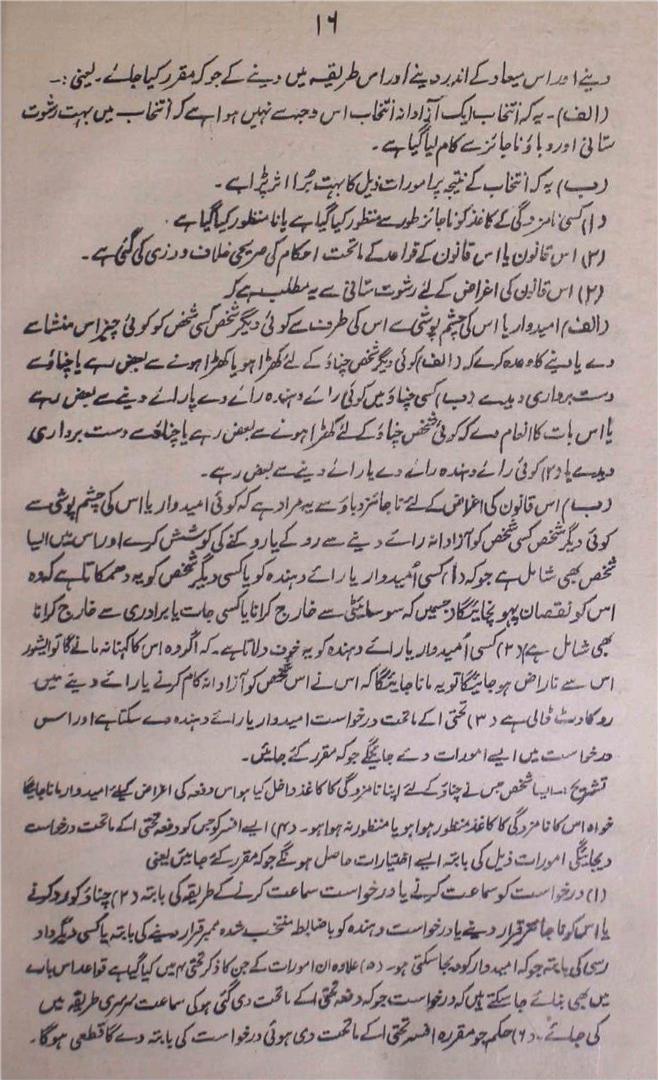 ۱۶
دینے اور اس میعاد کے اندر دینے اور اس طریقہ میں دینے کے جو کہ مقرر کیا جائے۔ یعنی :۔
(الف)۔ یہ کہ انتخاب ایک آزادانہ انتخاب اس وجہ سے نہیں ہوا ہے کہ انتخاب میں بہت رشوت
ستانی اور دباؤ ناجائز سے کام لیا گیا ہے۔
(ب) یہ کہ انتخاب کے نتیجہ پر امورات ذیل کا بہت بُرا اثر پڑا ہے۔
(۱) کسی نامزدگی کے کاغذ کو ناجائز طور سے منظور کیا گیا ہے یا نا منظور کیا گیا ہے۔
(۲) اس قانون یا اس قانون کے قواعد کے ماتحت احکام کی صریحی خلاف ورزی کی گئی ہے۔
(۲) اس قانون کی اغراض کے لئے رشوت ستانی سے یہ مطلب ہے کہ
(الف) امیدوار یا اس کی چشم پوشی سے اس کی طرف سے کوئی دیگر شخص کسی شخص کو کوئی چیز اس منشا سے
دے یا دینے کا وعدہ کرے کہ (الف) کوئی دیگر شخص چناؤ کے لئے کھڑا ہو یا کھڑا ہونے سے بعض رہے یا چناؤ سے
دست برداری دیدے (ب) کسی چناؤ میں کوئی رائے دہندہ رائے دے یا رائے دینے سے بعض رہے
یا اس بات کا انعام دے کہ کوئی شخص چناؤ کے لئے کھڑا ہونے سے بعض رہے یا چناؤ سے دست برداری
دیدے یا (۲) کوئی رائے دہندہ رائے دے یا رائے دینے سے بعض رہے۔
(ب) اس قانون کی اغراض کے لئے ناجائز دباؤ سے یہ مراد ہے کہ کوئی امیدوار یا اس کی چشم پوشی سے
کوئی دیگر شخص کسی شخص کو آزادانہ رائے دینے سے روکے یا روکنے کی کوشش کرے اور اس میں ایسا
شخص بھی شامل ہے جو کہ (۱) کسی اُمیدوار یا رائے دہندہ کو یا کسی دیگر شخص کو یہ دھمکاتا ہے کہ وہ
اس کو نقصان پہونچائیگا (جسمیں کہ سوسائیٹی سے خارج کرانا یا کسی جات یا برادری سے خارج کرانا
بھی شامل ہے) (۲) کسی اُمیدوار یا رائے دہندہ کو یہ خوف دلاتا ہے۔ کہ اگر وہ اس کا کہنا نہ مانے گا تو ایشور
اس سے ناراض ہو جائیگا تو یہ مانا جائیگا کہ اس نے اس شخص کو آزادانہ کام کرنے یا رائے دینے میں
روکاوٹ ڈالی ہے (۳) تحتی ۱ کے ماتحت درخواست امیدوار یا رائے دہندہ دے سکتا ہے اور اس
درخواست میں ایسے امورات دئے جائیںگے جو کہ مقرر کئے جائیں۔
تشریح :۔ ایسا شخص جس نے چناؤ کے لئے اپنا نامزدگی کا کاغذ داخل کیا ہو اس دفعہ کی اغراض کیلئے امیدوار مانا جائیگا
خواہ اس کا نامزدگی کا کاغذ منظور ہوا ہو یا منظور نہ ہوا ہو۔ (۴) ایسے افسر کو جس کو دفعہ تحتی ۱ کے ماتحت درخواست
دیجائیگی امورات ذیل کی بابتہ ایسے اختیارات حاصل ہونگے جو کہ مقرر کئے جائیں یعنی
(۱) درخواست کو سماعت کرنے یا درخواست سماعت کرنے کے طریقہ کی بابتہ (۲) چناؤ کو رد کرنے
یا اس کو ناجائز قرار دینے یا درخواست دہندہ کو باضابطہ منتخب شدہ ممبر قرار دینے کی بابتہ یا کسی دیگر داد
رسی کی بابتہ جو کہ امیدوار کو دیجا سکتی ہو۔ (۵) علاوہ ان امورات کے جن کا ذکر تحتی ۴ میں کیا گیا ہے قواعد اس بارے
میں بھی بنائے جا سکتے ہیں کہ درخواست جو کہ دفعہ تحتی ۱ کے ماتحت دی گئی ہو کی سماعت سرسری طریقہ میں
کی جائے۔ (۶) حکم جو مقررہ افسر تحتی ۱ کے ماتحت دی ہوئی درخواست کی بابتہ دے گا قطعی ہوگا۔